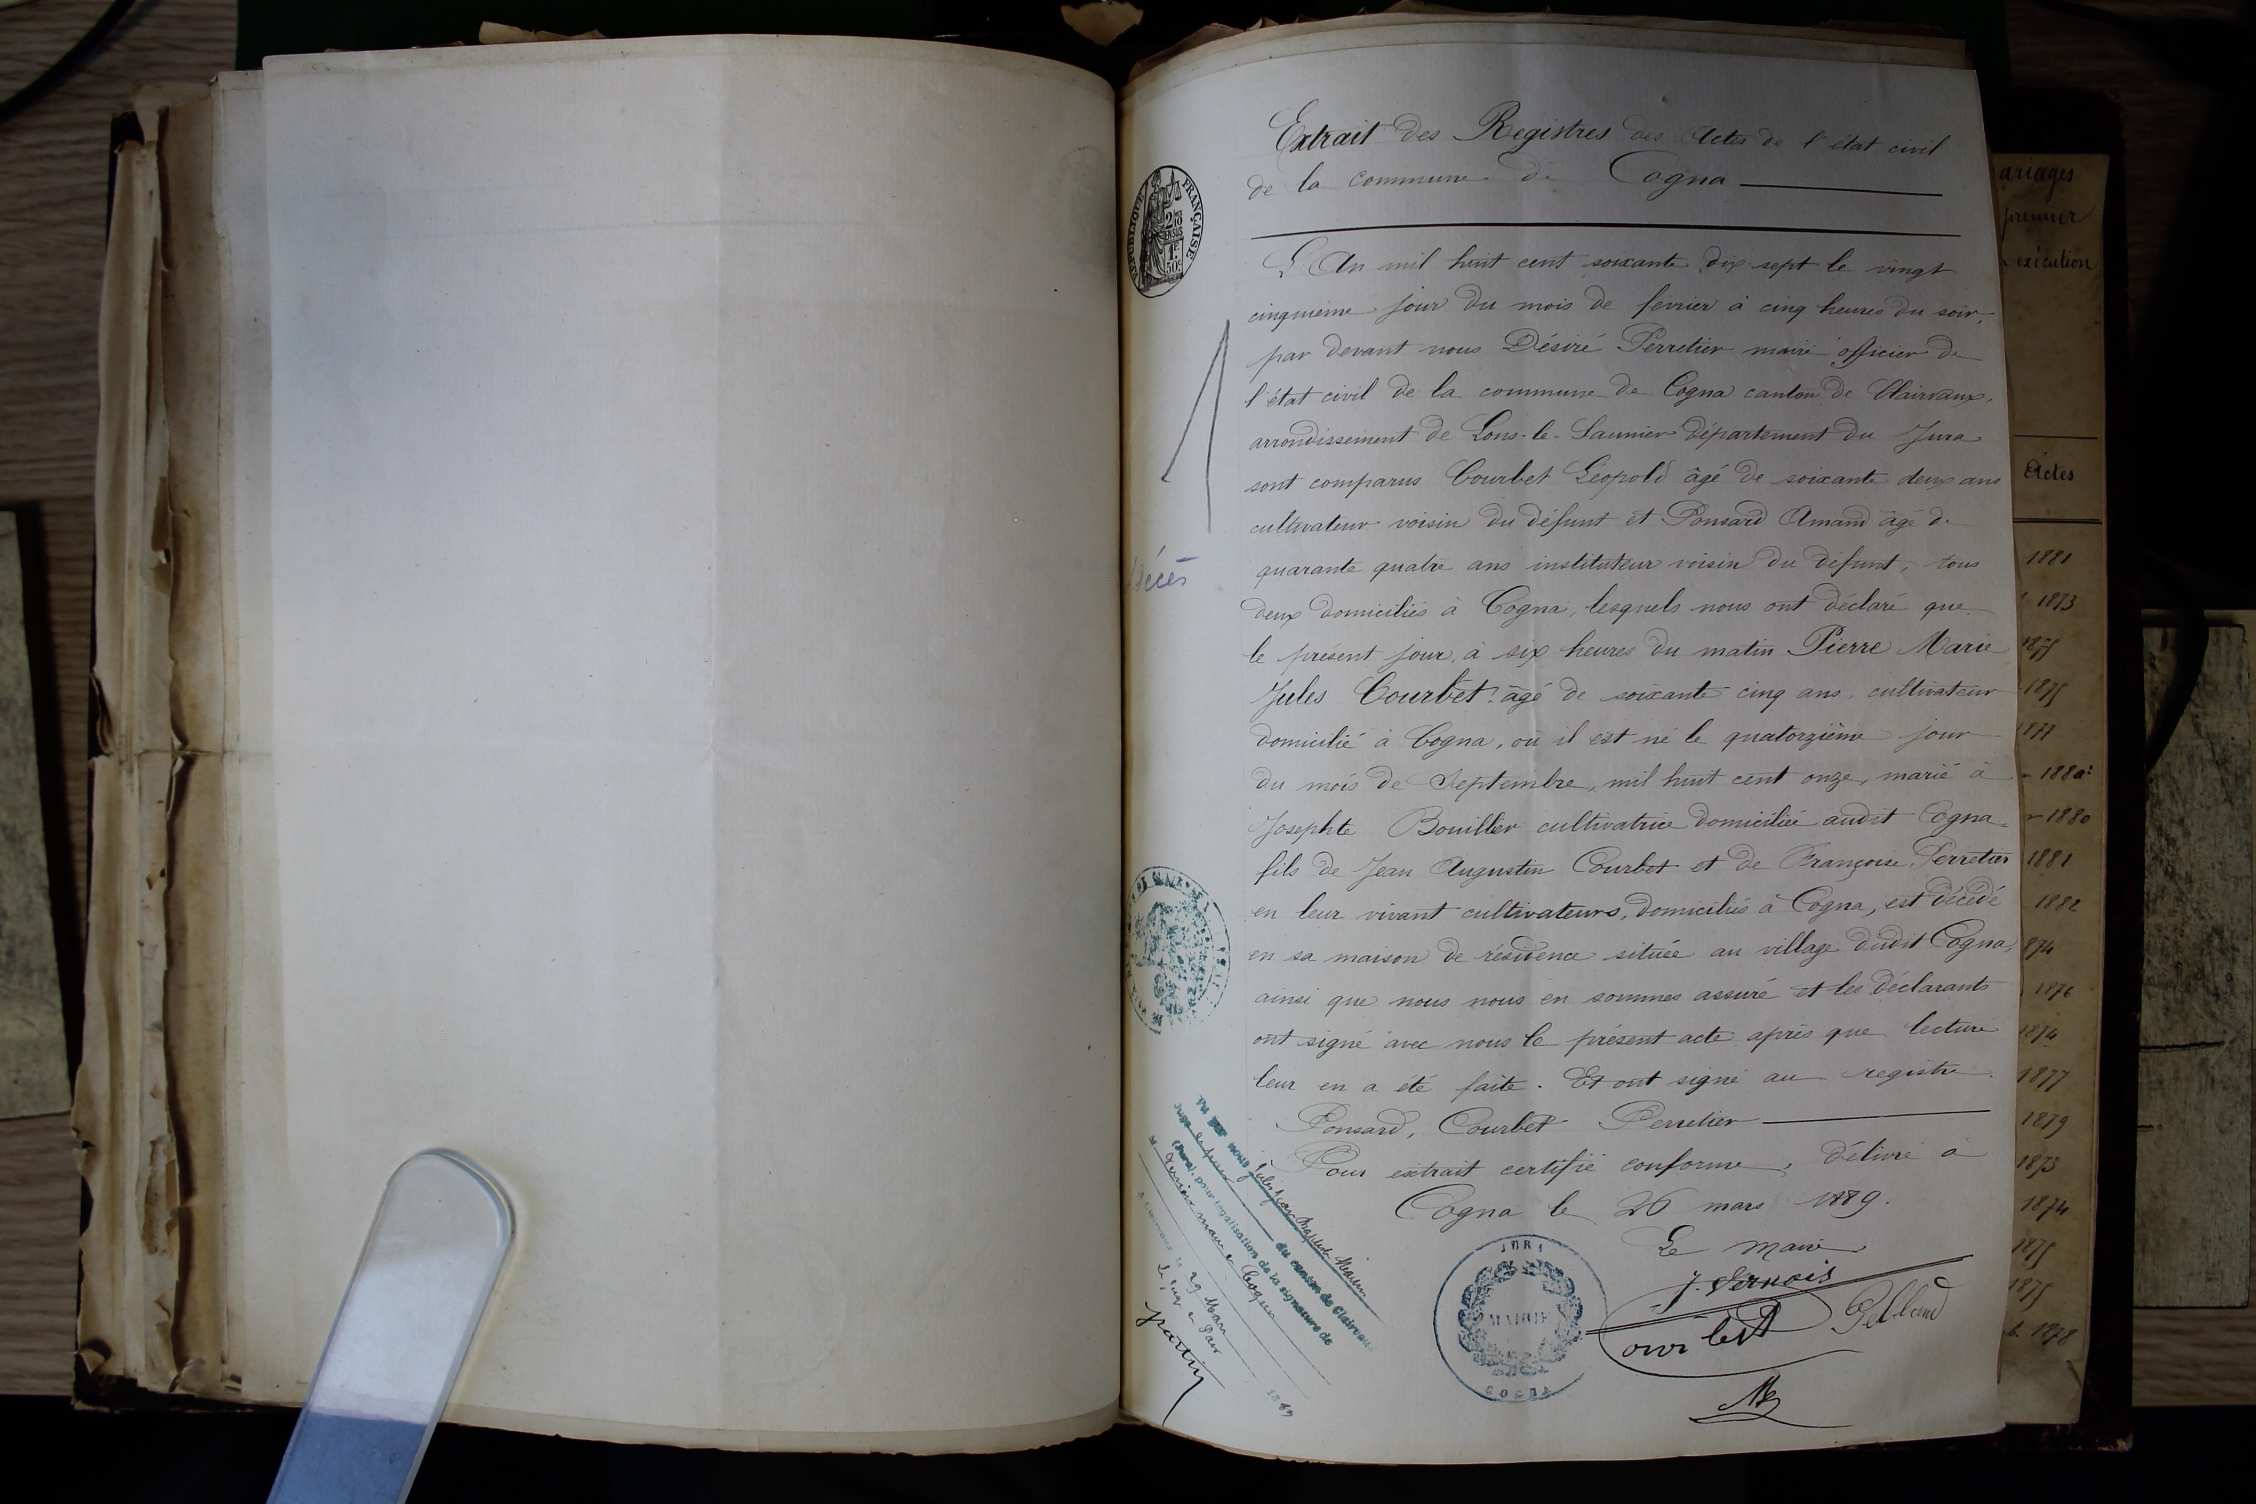 Extrait des Registres des Actes de l'état civil
de la commune de Cogna
RÉPUBLIQUE FRANÇAISE
L'An mil huit cent soixante dix-sept le vingt
cinquième jour du mois de fevrier à cinq heures du soir,
par devant nous Désiré Perretier maire officier de
l'état civil de la commune de Cogna canton de Clairvaux,
arrondissement de Lons-le-Saunier département du Jura
sont comparus Courbet Léopold âgé de soixante deux ans
cultivateur voisin du défunt et Ponsard Amand âgé de
quarante quatre ans instituteur voisin du défunt, tous
décès
deux domiciliés à Cogna, lesquels nous ont déclaré que
le présent jour, à six heures du matin Pierre Marie
Jules Courbet âgé de soixante cinq ans, cultivateur
domicilié à Cogna, où il est né le quatorzième jour
du mois de Septembre, mil huit cent onze, marié à
Josephte Bouiller cultivatrice domiciliée audit Cogna
fils de Jean Augustin Courbet et de Françoise Perretier
en leur vivant cultivateurs, domiciliés à Cogna, est décédé
en sa maison de résidence située au village dudit Cogna,
ainsi que nous nous en sommes assuré et les déclarants
ont signé avec nous le présent acte après que lecture
leur en a été faite. Et ont signé au registre
Ponsard, Courbet Perretier
Pour extrait certifié conforme, délivré à
Cogna le 26 mars 1889.
Le maire
J. Vernois
JURA
MAIRIE
COGNA
Vu par nous
Juge du canton de Clairvaux
(Jura), pour légalisation de la signature de
M. Vernois maire à Cogna
29 Mars 1889
Le Juge de Paix
ariages
premier
exécution
Actes
1881
1873
1875
1875
1877
1880
1880
1881
1882
874
1876
1874
1877
1879
1873
1874
1875
1875
1878